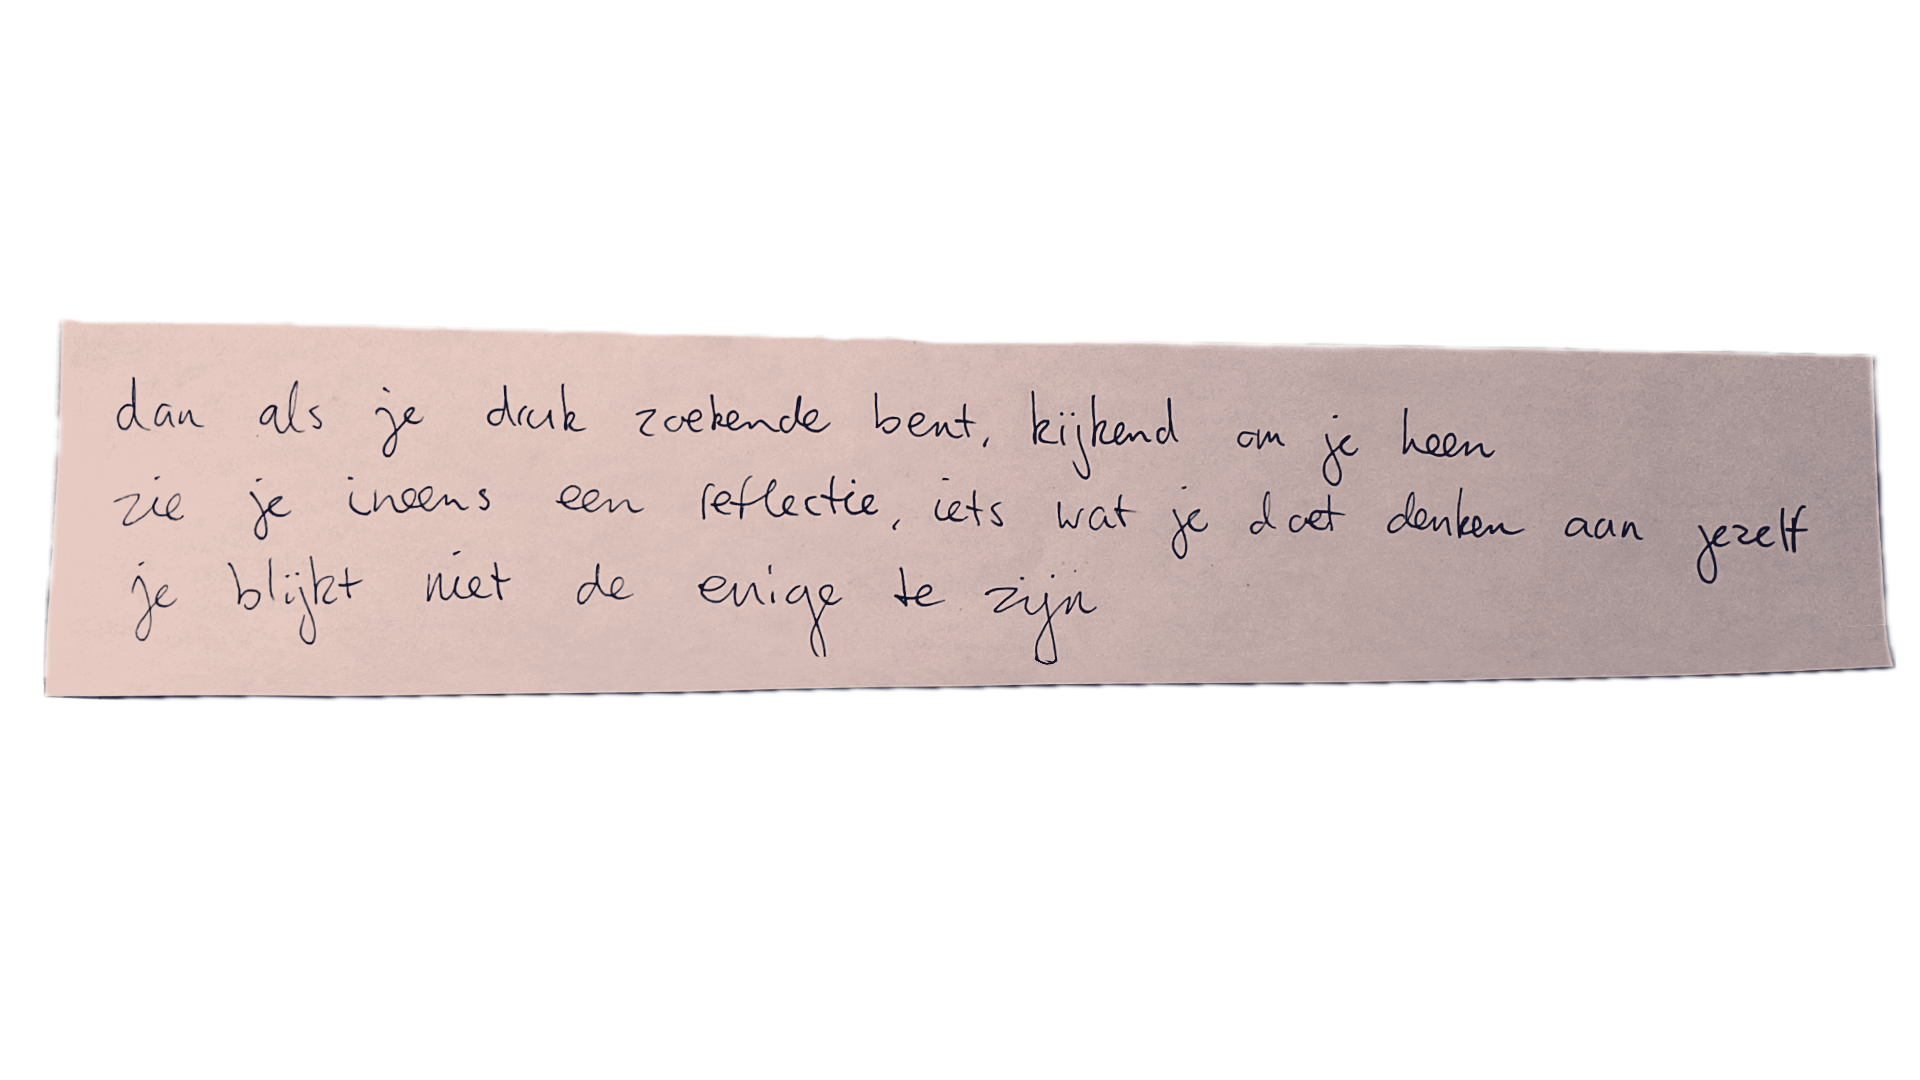 dan als je druk zoekende bent, kijkend om je heen
zie je ineens een reflectie, iets wat je doet denken aan jezelf
je blijkt niet de enige te zijn